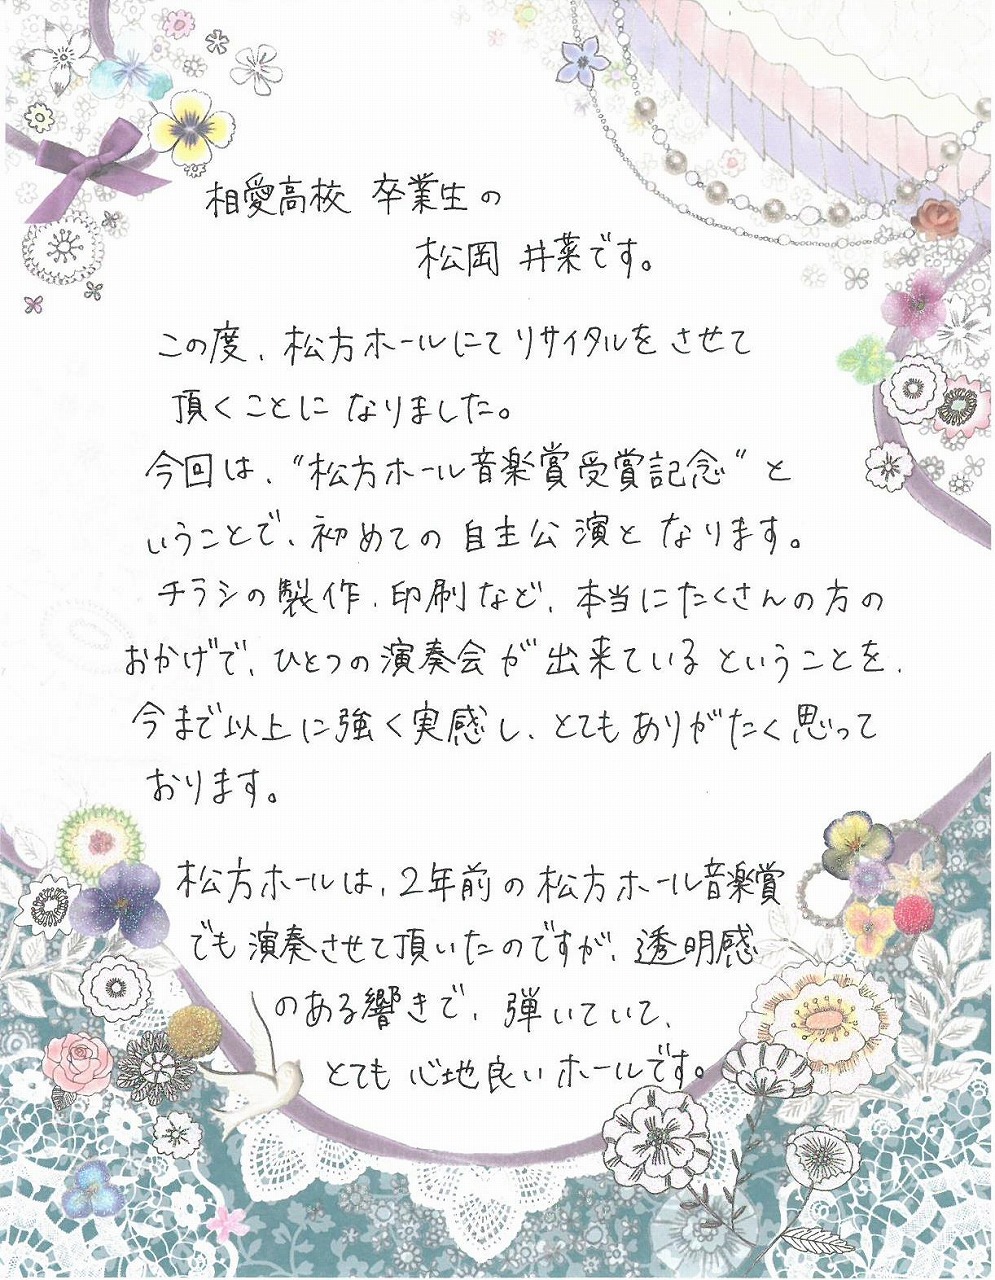 相愛高校 卒業生の
松岡 井菜です。
この度、松方ホールにてリサイタルをさせて
頂くことになりました。
今回は、“松方ホール音楽賞受賞記念”と
いうことで、初めての自主公演となります。
チラシの製作、印刷など、本当にたくさんの方の
おかげで、ひとつの演奏会が出来ているということを、
今まで以上に強く実感し、とてもありがたく思って
おります。
松方ホールは、2年前の松方ホール音楽賞
でも演奏させて頂いたのですが、透明感
のある響きで、弾いていて、
とても心地良いホールです。